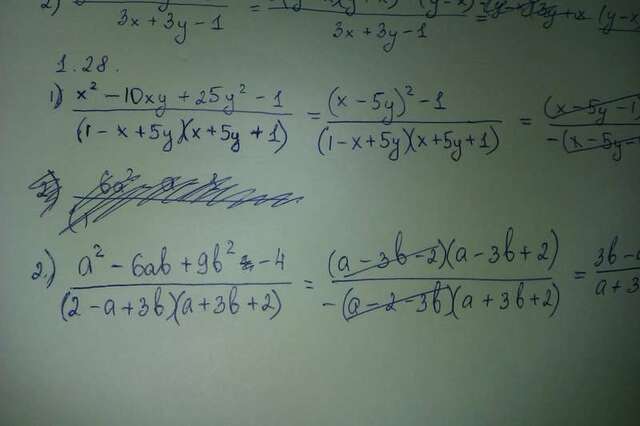 3x + 3y - 1 = 3x + 3y - 1 =
1.28.
1) x² - 10xy + 25y² - 1 / (1 - x + 5y)(x + 5y + 1) = (x - 5y)² - 1 / (1 - x + 5y)(x + 5y + 1) = (x - 5y - 1) / -(x - 5y -
2.) a² - 6ab + 9b² - 4 / (2 - a + 3b)(a + 3b + 2) = (a - 3b - 2)(a - 3b + 2) / -(a - 2 - 3b)(a + 3b + 2) = 3b - / a + 3